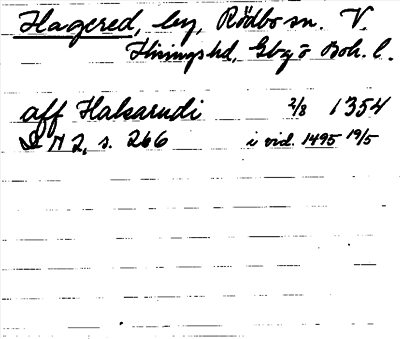 Hagered, by, Rödbo sn. V.
Hisings hd, Gbg o Boh. l.
aff Halsarudi 2/8 1354
DN 2, s. 266 i vid. 1495 19/5